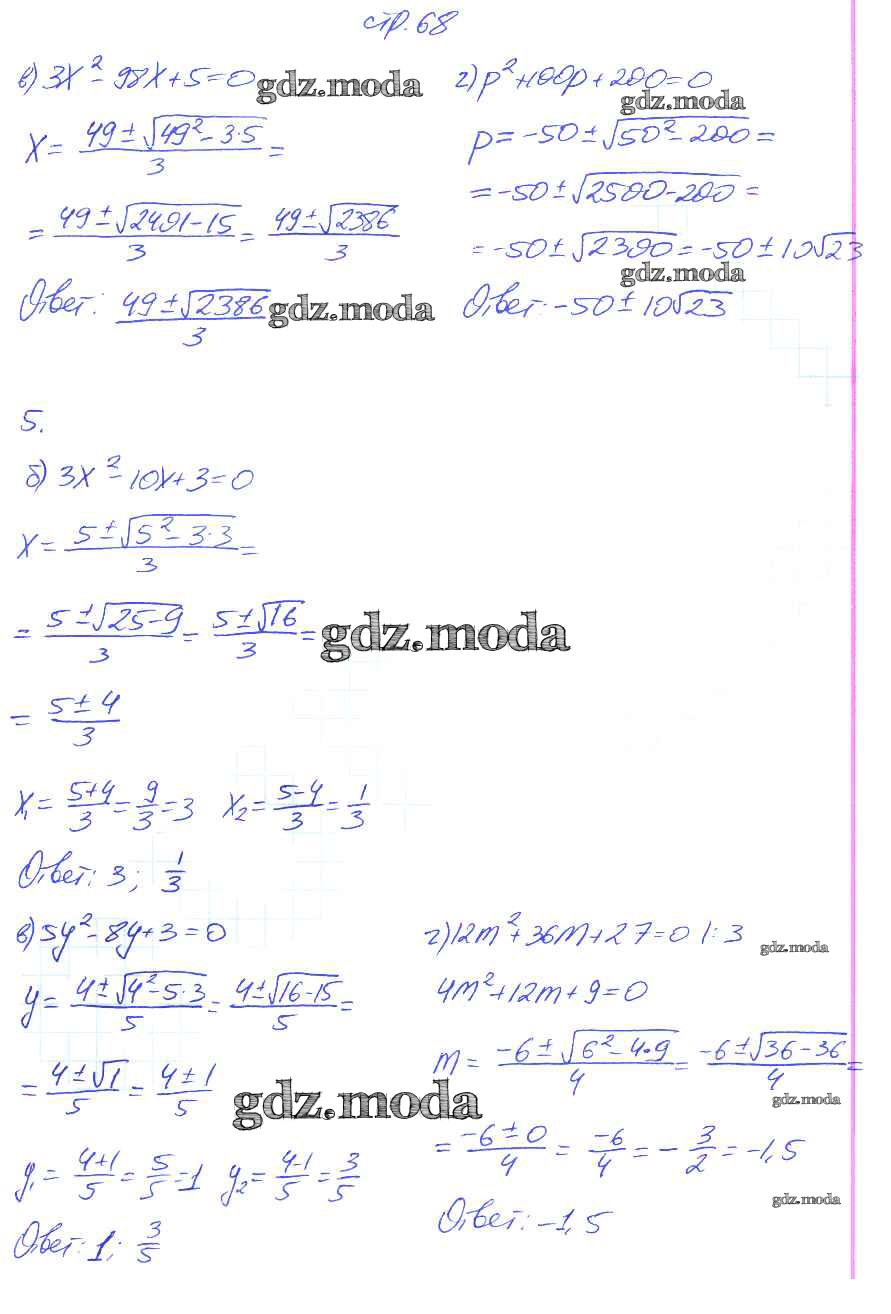 стр. 68
в) 3x² - 98x + 5 = 0 gdz.moda
x = (49 ± √(49² - 3·5))/3 =
= (49 ± √(2401 - 15))/3 = (49 ± √2386)/3
Ответ: (49 ± √2386)/3 gdz.moda
г) p² + 100p + 200 = 0
gdz.moda
p = -50 ± √(50² - 200) =
= -50 ± √(2500 - 200) =
= -50 ± √2300 = -50 ± 10√23
gdz.moda
Ответ: -50 ± 10√23
5.
б) 3x² - 10x + 3 = 0
x = (5 ± √(5² - 3·3))/3 =
= (5 ± √(25 - 9))/3 = (5 ± √16)/3 = gdz.moda
= (5 ± 4)/3
x₁ = (5+4)/3 = 9/3 = 3 x₂ = (5-4)/3 = 1/3
Ответ: 3; 1/3
в) 5y² - 8y + 3 = 0
y = (4 ± √(4² - 5·3))/5 = (4 ± √(16 - 15))/5 =
= (4 ± √1)/5 = (4 ± 1)/5 gdz.moda
y₁ = (4+1)/5 = 5/5 = 1 y₂ = (4-1)/5 = 3/5
Ответ: 1; 3/5
г) 12m² + 36m + 27 = 0 |: 3 gdz.moda
4m² + 12m + 9 = 0
m = (-6 ± √(6² - 4·9))/4 = (-6 ± √(36 - 36))/4 =
gdz.moda
= (-6 ± 0)/4 = -6/4 = -3/2 = -1,5
gdz.moda
Ответ: -1,5